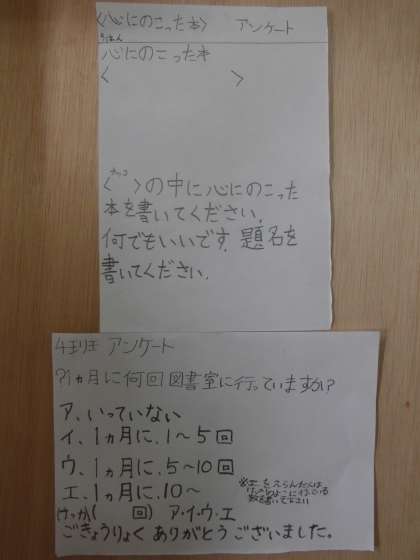 <心にのこった本> アンケート
5はん
心にのこった本
< >
< >の中に心にのこった
本を書いてください。
何でもいいです。題名を
書いてください。
4班 アンケート
?1ヵ月に何回図書室に行っていますか?
ア、いっていない
イ、1ヵ月に、1〜5回
ウ、1ヵ月に、5〜10回
エ、1ヵ月に、10〜
※エをえらんだ人は
数を書いて下さい
けっか( 回) ア・イ・ウ・エ
ごきょうりょくありがとうございました。